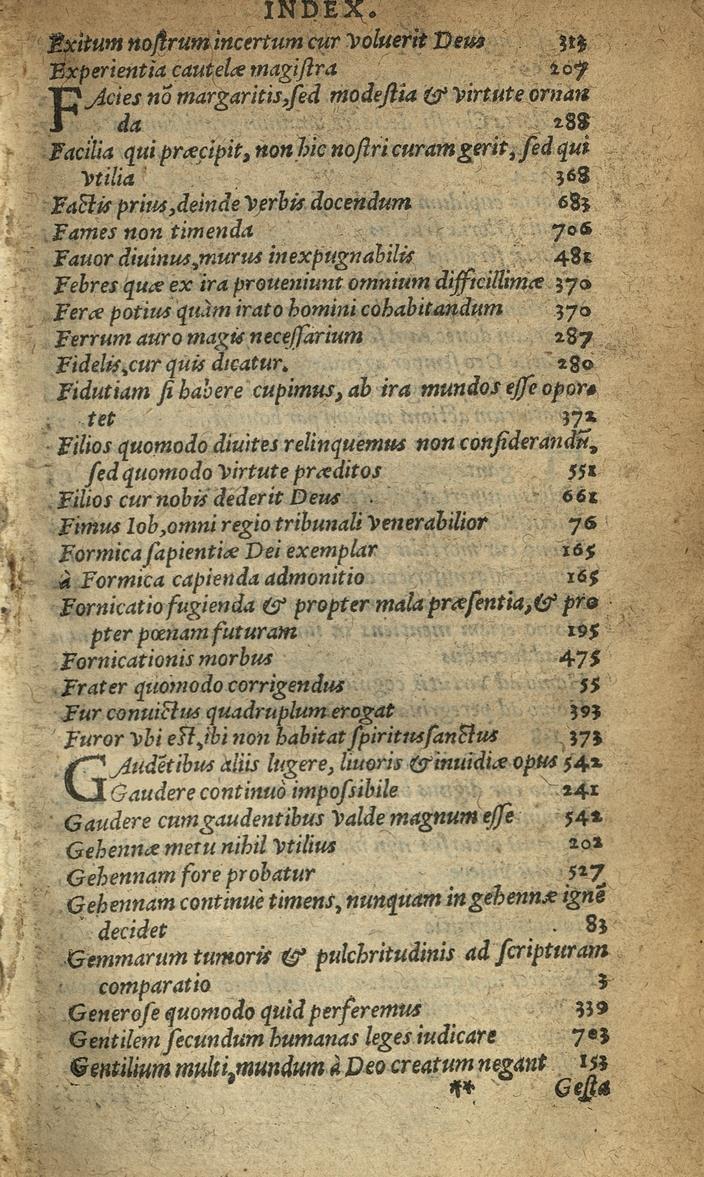 INDEX.
Exitum noſtrum incertum cur voluerit Deus 313
Experientia cautelæ magiſtra 207
FAcies nō margaritis, ſed modeſtia & virtute ornan
da 288
Facilia qui præcipit, non hic noſtri curam gerit, ſed qui
vtilia 368
Factis prius, deinde verbis docendum 683
Fames non timenda 706
Fauor diuinus, murus inexpugnabilis 481
Febres quæ ex ira proueniunt omnium difficillimæ 370
Feræ potius quàm irato homini cohabitandum 370
Ferrum auro magis neceſſarium 287
Fidelis, cur quis dicatur. 280
Fidutiam ſi habere cupimus, ab ira mundos eſſe opor-
tet 372
Filios quomodo diuites relinquemus non conſiderandū,
ſed quomodo virtute præditos 551
Filios cur nobis dederit Deus 661
Fimus Iob, omni regio tribunali venerabilior 76
Formica ſapientiæ Dei exemplar 165
à Formica capienda admonitio 165
Fornicatio fugienda & propter mala præſentia, & pro
pter pœnam futuram 195
Fornicationis morbus 475
Frater quomodo corrigendus 55
Fur conuictus quadruplum erogat 393
Furor vbi eſt, ibi non habitat ſpiritus ſanctus 373
GAudētibus aliis lugere, liuoris & inuidiæ opus 542
Gaudere continuò impoſsibile 241
Gaudere cum gaudentibus valde magnum eſſe 542
Gehennæ metu nihil vtilius 202
Gehennam fore probatur 527
Gehennam continuè timens, nunquam in gehennæ ignē
decidet 83
Gemmarum tumoris & pulchritudinis ad ſcripturam
comparatio 3
Generoſe quomodo quid perferemus 339
Gentilem ſecundum humanas leges iudicare 703
Gentilium multi, mundum à Deo creatum negant 153
** Geſta